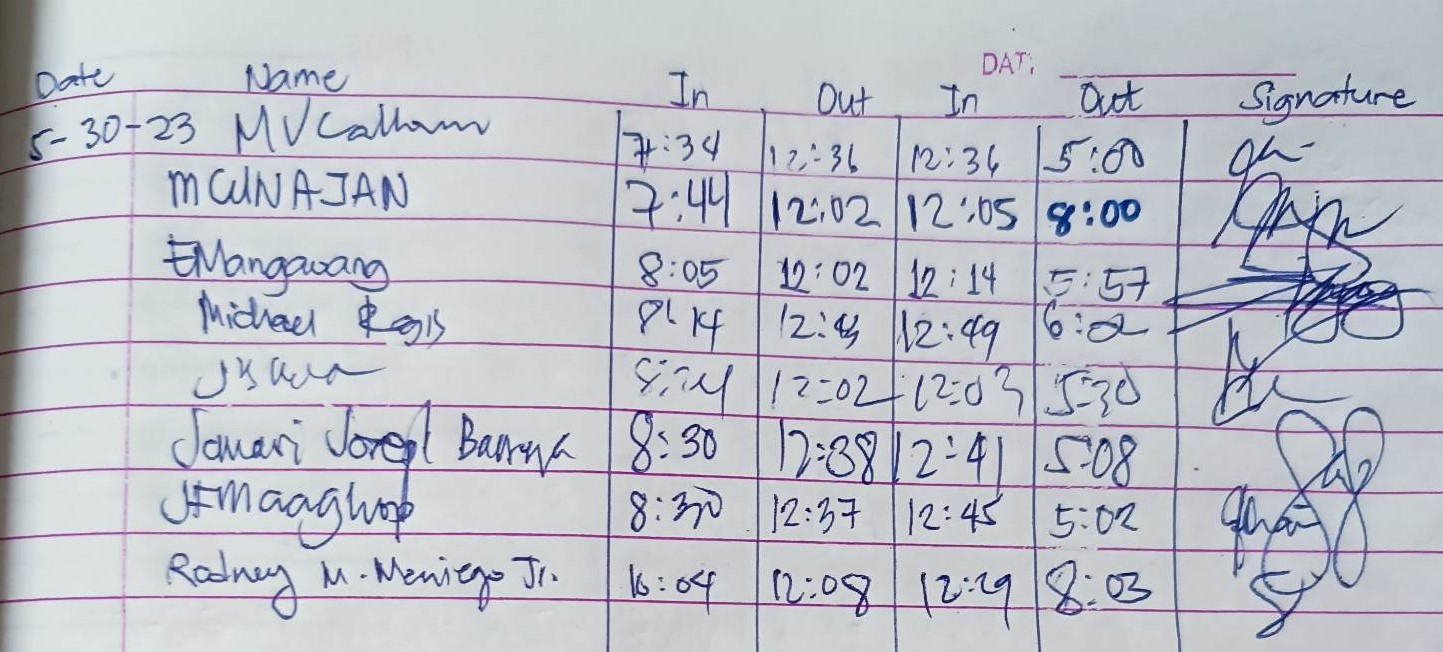 DAT:
Date Name In Out In Out Signature
5-30-23 MV Calham 7:34 12:36 12:36 5:00
MCUNAJAN 7:44 12:02 12:05 8:00
EMangawang 8:05 12:02 12:14 5:57
Michael Regis 8:14 12:49 6:02
12:02 12:03 5:30
Jomari Joseph 8:30 12:38 12:41 5:08
8:30 12:37 12:45 5:02
Rodney M. Meniego Jr. 12:08 12:29 8:03